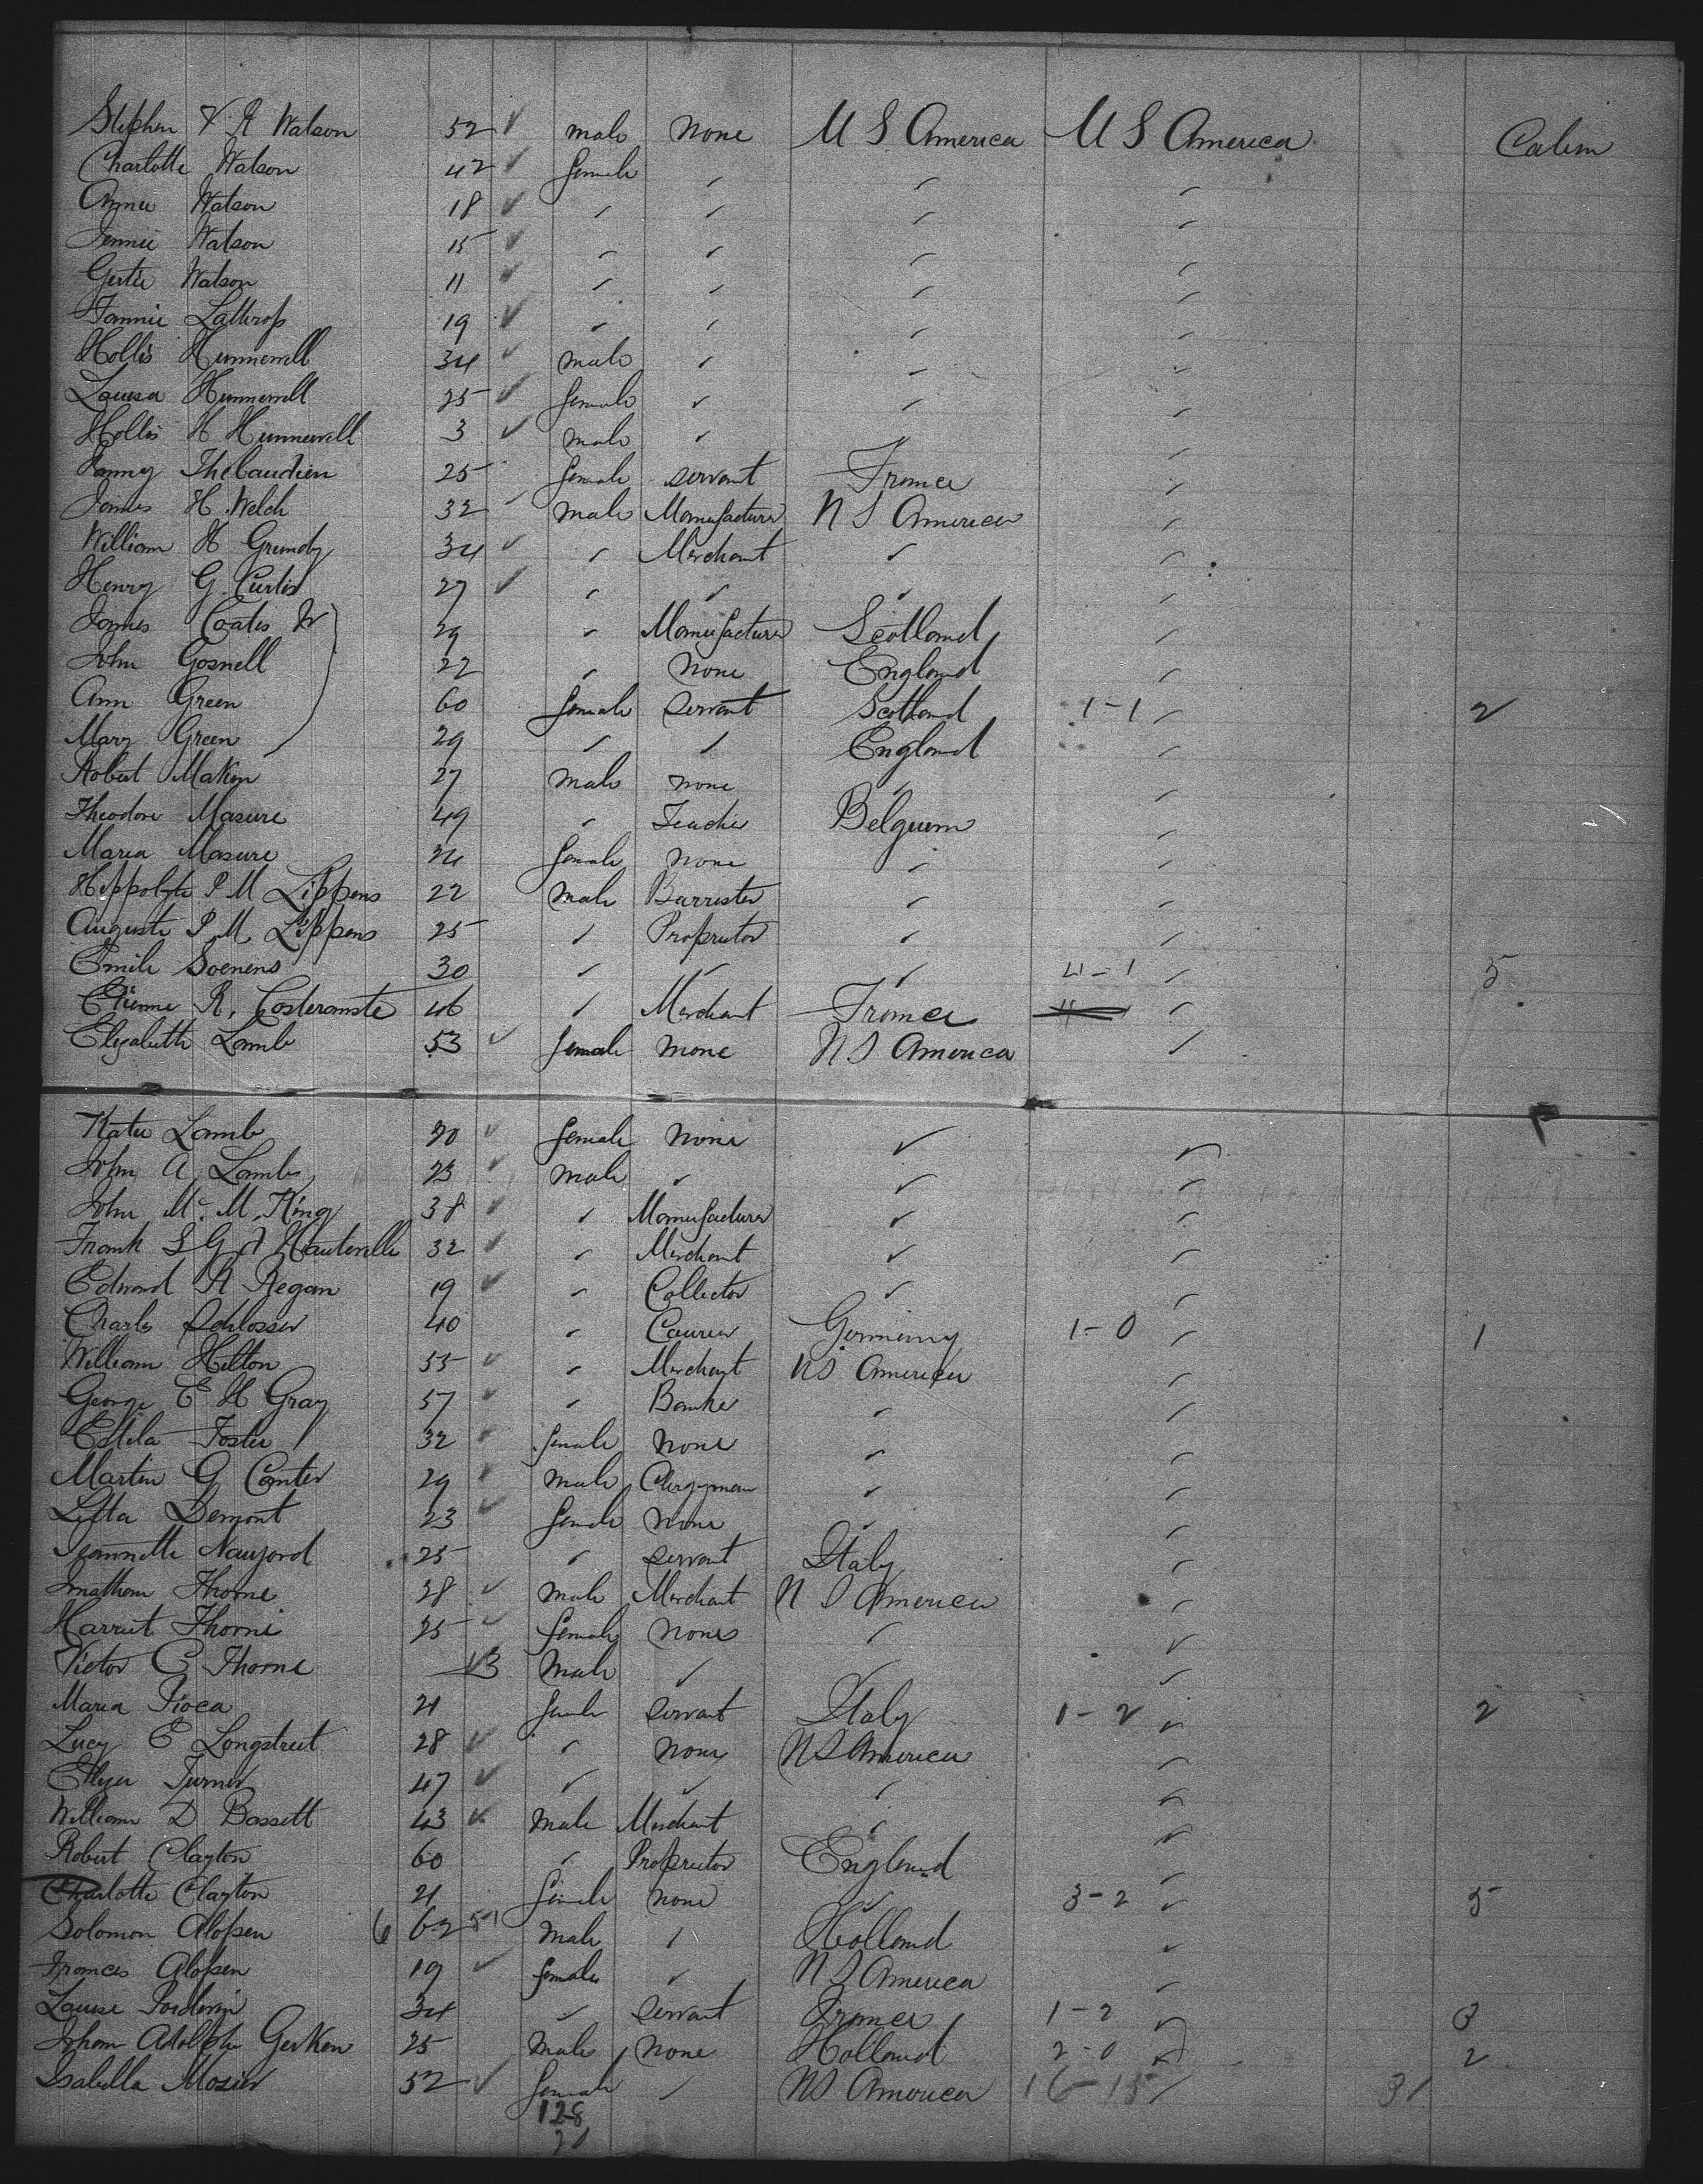 Stephen V. R Watson 52 ✓ male none U S America U S America Cabin
Charlotte Watson 42 ✓ female ✓ ✓ ✓
Annie Watson 18 ✓ ✓ ✓ ✓ ✓
Jennie Watson 15 ✓ ✓ ✓ ✓ ✓
Gertie Watson 11 ✓ ✓ ✓ ✓ ✓
Fannie Lathrop 19 ✓ ✓ ✓ ✓ ✓
Hollis Hunnewell 34 ✓ male ✓ ✓ ✓
Louisa Hunnewell 25 ✓ female ✓ ✓ ✓
Hollis H Hunnewell 3 ✓ male ✓ ✓ ✓
Fanny Thebaudien 25 female servant France ✓
James H. Welch 32 ✓ male Manufacturer U S America ✓
William H Grundy 34 ✓ ✓ Merchant ✓ ✓
Henry G. Curtis 27 ✓ ✓ ✓ ✓ ✓
James Coates Jr 29 ✓ Manufacturer Scotland ✓
John Gosnell 22 ✓ none England ✓
Ann Green 60 female servant Scotland 1-1 ✓ 2
Mary Green 29 ✓ ✓ England ✓
Robert Makin 27 male none ✓ ✓
Theodore Masure 49 ✓ Teacher Belgium ✓
Maria Masure 24 female none ✓ ✓
Hippolyte P M Lippens 22 male Barrester ✓ ✓
Auguste P. M. Lippens 25 ✓ Proprietor ✓ ✓
Emile Soenens 30 ✓ ✓ ✓ 4-1 ✓ 5
Etienne R. 46 ✓ Merchant France ✓
Elizabeth Lamb 53 ✓ female none U S America ✓
Kate Lamb 20 ✓ female none ✓ ✓
John A Lamb 23 ✓ male ✓ ✓ ✓
John Mc. M. King 38 ✓ ✓ Manufacturer ✓ ✓
Frank S G d Hauteville 32 ✓ ✓ Merchant ✓ ✓
Edward R Regan 19 ✓ ✓ Collector ✓ ✓
Charles Schlosser 40 ✓ Courier Germany 1-0 ✓ 1
William Hilton 55 ✓ ✓ Merchant U S America ✓
George E H Gray 57 ✓ ✓ Banker ✓ ✓
Estela Foster 32 ✓ female none ✓ ✓
Martin G Canter 29 ✓ male Clergyman ✓ ✓
Letta Demont 23 ✓ female none ✓ ✓
Jeannette 25 ✓ servant Italy ✓
Jonathan Thorne 28 ✓ male Merchant U S America ✓
Harriet Thorne 25 ✓ female none ✓ ✓
Victor C Thorne 3 male ✓ ✓ ✓
Maria Pioca 21 female servant Italy 1-2 ✓ 2
Lucy E Longstreet 28 ✓ ✓ none U S America ✓
Turner 47 ✓ ✓ ✓ ✓ ✓
William D Bassett 43 ✓ male Merchant ✓ ✓
Robert Clayton 60 ✓ Proprietor England ✓
Charlotte Clayton 21 female none ✓ 3-2 ✓ 5
Solomon Alofsen 6 62 51 male ✓ Holland ✓
Frances Alofsen 19 ✓ female ✓ U S America ✓
Louise 34 ✓ servant France 1-2 ✓ 3
Johan Adolph Gerken 25 male none Holland 2-0 ✓ 2
Isabella Mosier 52 ✓ female ✓ U S America 16-15 ✓ 31
128